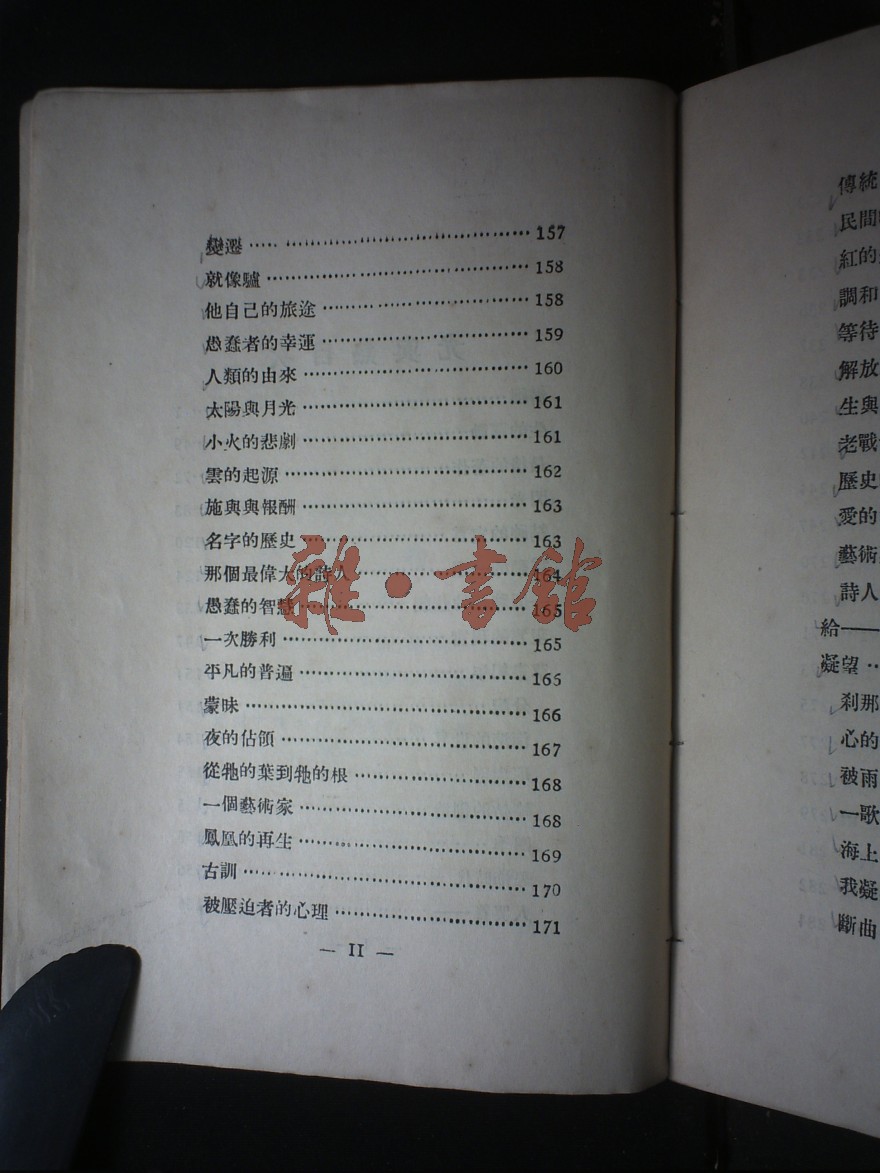 變遷 157
就像驢 158
他自己的旅途 158
愚蠢者的幸運 159
人類的由來 160
太陽與月光 161
小火的悲劇 161
雲的起源 162
施與與報酬 163
名字的歷史 163
那個最偉大的詩人 164
愚蠢的智慧 165
一次勝利 165
平凡的普遍 165
蒙昧 166
夜的佔領 167
從牠的葉到牠的根 168
一個藝術家 168
鳳凰的再生 169
古訓 170
被壓迫者的心理 171
— II —
雜·書館
傳統
民間
紅的
調和
等待
解放
生與
老戰
歷史
愛的
藝術
詩人
給——
凝望
刹那
心的
被雨
一歌
海上
我凝
斷曲